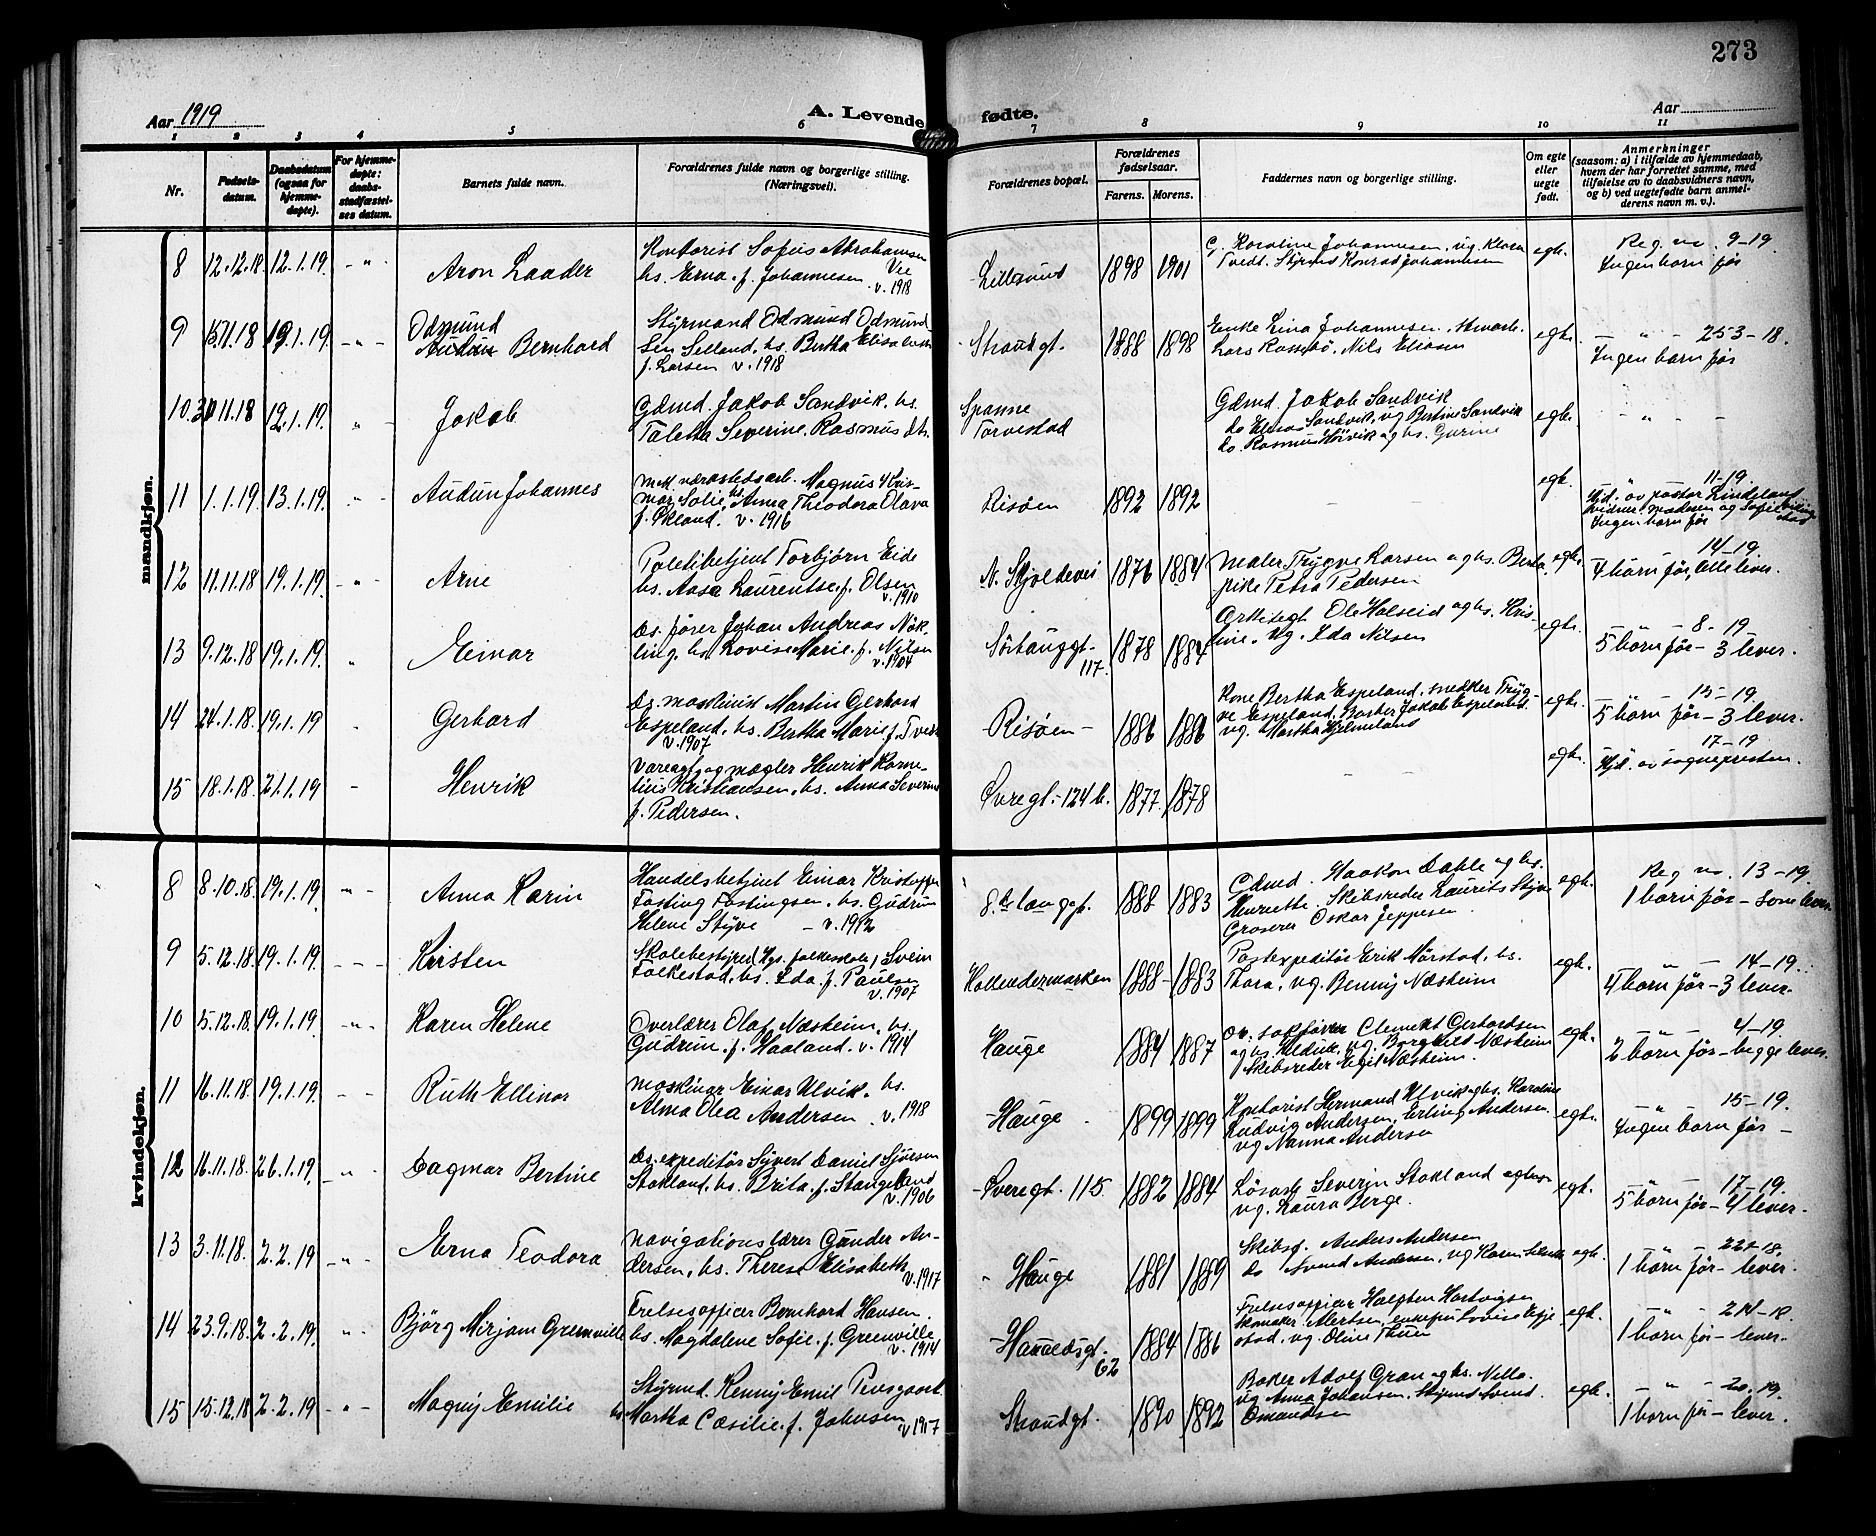 273
Aar 1919
A. Levende fødte.
Aar
1 2 3 4 5 6 7 8 9 10 11
Nr.
Fødsels-
datum.
Daabsdatum
(ogsaa for
hjemme-
døpte).
For hjemme-
døpte:
daabs-
stadfæstel-
ses datum.
Barnets fulde navn.
Forældrenes fulde navn og borgerlige stilling.
(Næringsvei).
Forældrenes bopæl.
Forældrenes
fødselsaar.
Farens. Morens.
Faddernes navn og borgerlige stilling.
Om egte
eller
uegte
født.
Anmerkninger
(saasom: a) i tilfælde av hjemmedaab,
hvem der har forrettet samme, med
tilføielse av to daabsvidners navn,
og b) ved uegtefødte barn anmel-
derens navn m. v.).
mandkjøn.
8 12.12.18 12.1.19. - " - Aron Laader
Kontorist Sofus Abrahamsen
hs. Erna f. Johannesen v. 1918
Lillesund 1898 1901
G. Karoline Johannesen, ug. Klara
Tvedt. Styrmd Konrad Johannesen
egte. Reg. no. 9-19
Ingen barn før
9 15.11.18 19.1.19. - " - Odmund
Bernhard
Styrmand Odmund Odmund-
sen Selland, hs. Bertha Elisabeth
f. Larsen v. 1918
Strandgt. 1888 1898
Enke Lina Johannesen,
Lars Rossebø, Nils Eliasen
egte. - " - 253-18.
Ingen barn før
10 30.11.18 12.1.19. " - Jakob
Gdmd. Jakob Sandvik, hs.
Taletta Severine Rasmusdtr.
Spanne
Torvestad
Gdmd. Jakob Sandvik
do Elias Sandvik, ug Bertine Sandvik
do. Rasmus Høivik og hs. Gurine
egte. - " -
11 1.1.19 13.1.19. " - Audun Johannes
Mek. værkstedsarb. Magnus
Solie, hs. Anna Theodora Olava
f. Økland. v. 1916
Risøen 1892 1892
- -
egte. 11-19.
Hjd. av pastor Lindeland
Ingen barn før
12 11.11.18 19.1.19. - " - Arne
Politibetjent Torbjørn Eide
hs. Aasa Laurentse f. Olsen
v. 1910
N. Skjoldevei 1876 1884
Maler Trygve Larsen og hs. Berta,
pike Petra Pedersen
egte. 14-19.
4 barn før, alle lever.
13 9.12.18 19.1.19. " Einar
Ds. fører Johan Andreas Nøk-
ling, hs. Lovise Marie f. Nilsen
v. 1904
Sørhauggt.
117. 1878 1884
Arkitegt Ole Halseid og hs. Kris-
tine. Ug. Ida Nilsen
egte. - " - 8-19
5 barn før - 3 lever.
14 24.1.18. 19.1.19 " Gerhard
Ds. maskinist Martin Gerhard
Espeland, hs. Bertha Marie f. Tveit
v. 1907
Risøen - 1886 1886
Kone Bertha Espeland, snedker Tryg-
ve Espeland, Jakob Espeland.
ug. Martha Hjelmeland
egte. 15-19
5 barn før - 3 lever.
15 18.1.18. 21.1.19 - Henrik
Vareagt. og mægler Henrik Korne-
lius Kristiansen, hs. Anna Severine
f. Pedersen.
Øvregt. 124 b. 1877. 1878
egte. 17-19
Hjd. av sognepresten.
kvindekjøn.
8 8.10.18. 19.1.19. - " - Anna Karin
Handelsbetjent Einar Kristoffer
Fasting Fastingsen, hs. Gudrun
Helene Støve - v. 1912
1888 1883
Gdmd. Haakon Dahle og hs.
Henriette. Skibsreder Laurits Støve
Groserer Oskar Jeppesen
egte. Reg no. 13-19
1 barn før - som lever.
9 5.12.18. 19.1.19. - - - Kirsten
Skolebestyrer Hgs. folkeskole, Svein
Folkestad, hs. Ida f. Paulsen
v. 1907
Hollendermarken 1888 1883
Postexpeditør Erik Mørstad, hs.
Thora, ug. Benny Næsheim
egte. - " - 14-19.
4 barn før - 3 lever.
10 5.12.18. 19.1.19 - " - Karen Helene
Overlærer Olaf Næsheim, hs.
Gudrun f. Haaland. v. 1914
Hauge 1884 1887
Ov. sakfører Clement Gerhardsen
og hs. ug. Borghild Næsheim
Skibsreder Egil Næsheim.
egte. - " - 4-19.
2 barn før - begge lever.
11 16.11.18 19.1.19. - - Ruth Ellinor
Maskinar. Einar Ulvik, hs.
Alma Olea Andersen. v. 1918
Hauge 1899 1899
Kontorist Hermand Ulvik og hs. Karoline
Ludvig Andersen, Erling Andersen.
ug Nanna Andersen
egte. - " - 15-19.
Ingen barn før -
12 16.11.18. 26.1.19. - " - Dagmar Bertine
Ds. expeditør Syvert Daniel Sjursen
Stakland, hs. Brita f. Stangeland
v. 1906
Øvregt. 115. 1882 1884
Løsarb. Severin Stakland og hs.
ug. Laura Berge.
egte. - " - 17-19.
5 barn før - 4 lever.
13 3.11.18. 2.2.19 - " - Erna Teodora
Navigationslærer Gunder An-
dersen, hs. Therese Elisabeth
v. 1917
Hauge 1881 1889
Skibsf. Anders Andersen
do Svend Andersen, ug Karen
egte. - " - 221-18.
1 barn før - lever.
14 23.9.18. 2.2.19. " - Bjørg Mirjam Greenville
Frelsesofficer Bernhard Hansen
hs. Magdalene Sofie f. Greenville
v. 1914
Haraldsgt.
62 1884 1886
Frelsesofficer Halften Hartvigsen
Skomaker Mertsen, enkefru Lovise
ug. Oline Thuen
egte. - " - 214-18.
1 barn før - lever.
15 15.12.18 2.2.19 - " - Magny Emilie
Styrmd. Kenny Emil
hs Martha Cæsilie f. Johnsen
v 1917
Strandgt. 1890 1892
Baker Adolf Gran og hs. Nille.
ug Anna Johansen. Styrmd Svend
Osmundsen
egte. - " - 20.19.
1 barn før - lever.